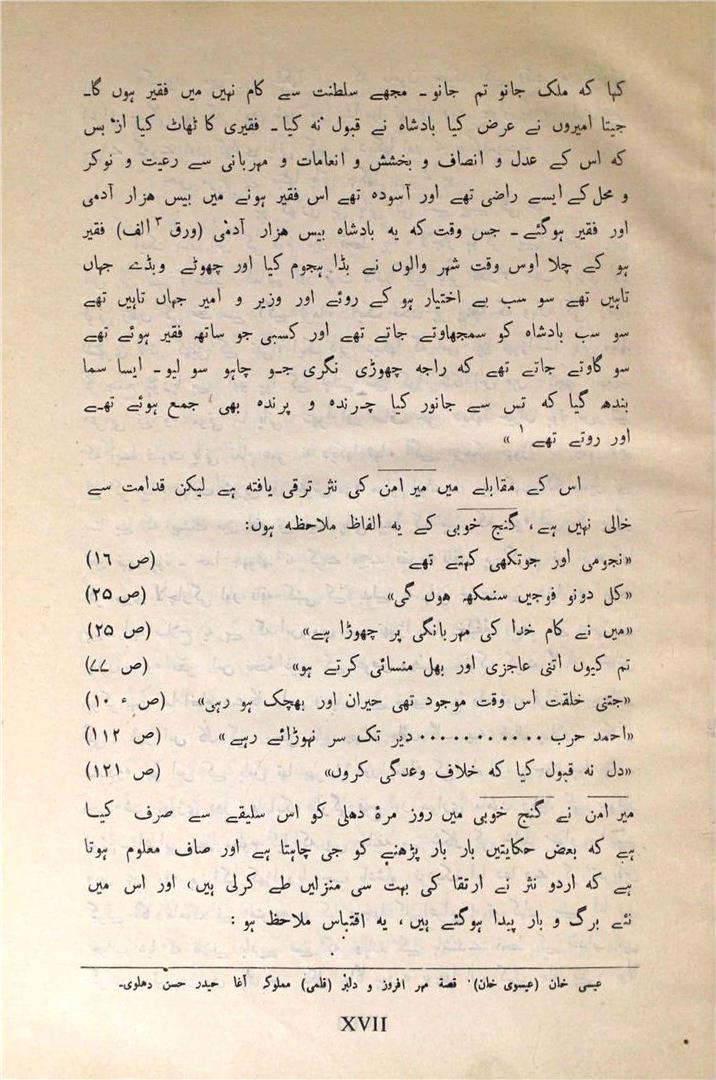 کہا کہ ملک جانو تم جانو۔ مجھے سلطنت سے کام نہیں میں فقیر ہوں گا۔
جیتا امیروں نے عرض کیا بادشاہ نے قبول نہ کیا۔ فقیری کا ٹھاٹ کیا از بس
کہ اس کے عدل و انصاف و بخشش و انعامات و مہربانی سے رعیت و نوکر
و محل کے ایسے راضی تھے اور آسودہ تھے اس فقیر ہونے میں بیس ہزار آدمی
اور فقیر ہوگئے۔ جس وقت کہ یہ بادشاہ بیس ہزار آدمی (ورق ۳ الف) فقیر
ہو کے چلا اوس وقت شہر والوں نے بڈا ہجوم کیا اور چھوٹے وبڈے جہاں
تاہیں تھے سو سب بے اختیار ہو کے روئے اور وزیر و امیر جہاں تاہیں تھے
سو سب بادشاہ کو سمجھاوتے جاتے تھے اور کسبی جو ساتھ فقیر ہوئے تھے
سو گاوتے جاتے تھے کہ راجہ چھوڑی نگری جو چاہو سو لیو۔ ایسا سما
بندھ گیا کہ تس سے جانور کیا چرندہ و پرندہ بھی جمع ہوئے تھے
اور روتے تھے ۱ »
اس کے مقابلے میں میر امن کی نثر ترقی یافتہ ہے لیکن قدامت سے
خالی نہیں ہے، گنج خوبی کے یہ الفاظ ملاحظہ ہوں:
«نجومی اور جوتکھی کہتے تھے (ص ١٦)
«کل دونو فوجیں سنمکھ ہوں گی» (ص ۲۵)
«میں نے کام خدا کی مہربانگی پر چھوڑا ہے» (ص ۲۵)
تم کیوں اتنی عاجزی اور بھل منسائی کرتے ہو» (ص ۷۷)
«جتنی خلقت اس وقت موجود تھی حیران اور بھچک ہو رہی» (ص ۱۰ء)
«احمد حرب ........... دیر تک سر نہوڑائے رہے» (ص ۱۱۲)
«دل نہ قبول کیا کہ خلاف وعدگی کروں» (ص ۱۲۱)
میر امن نے گنج خوبی میں روز مرۂ دھلی کو اس سلیقے سے صرف کیا
ہے کہ بعض حکایتیں بار بار پڑھنے کو جی چاہتا ہے اور صاف معلوم ہوتا
ہے کہ اردو نثر نے ارتقا کی بہت سی منزلیں طے کرلی ہیں، اور اس میں
نئے برگ و بار پیدا ہوگئے ہیں، یہ اقتباس ملاحظ ہو :
عیسی خان (عیسوی خان) قصۂ مہر افروز و دلبر (قلمی) مملوکہ آغا حیدر حسن دھلوی۔
XVII